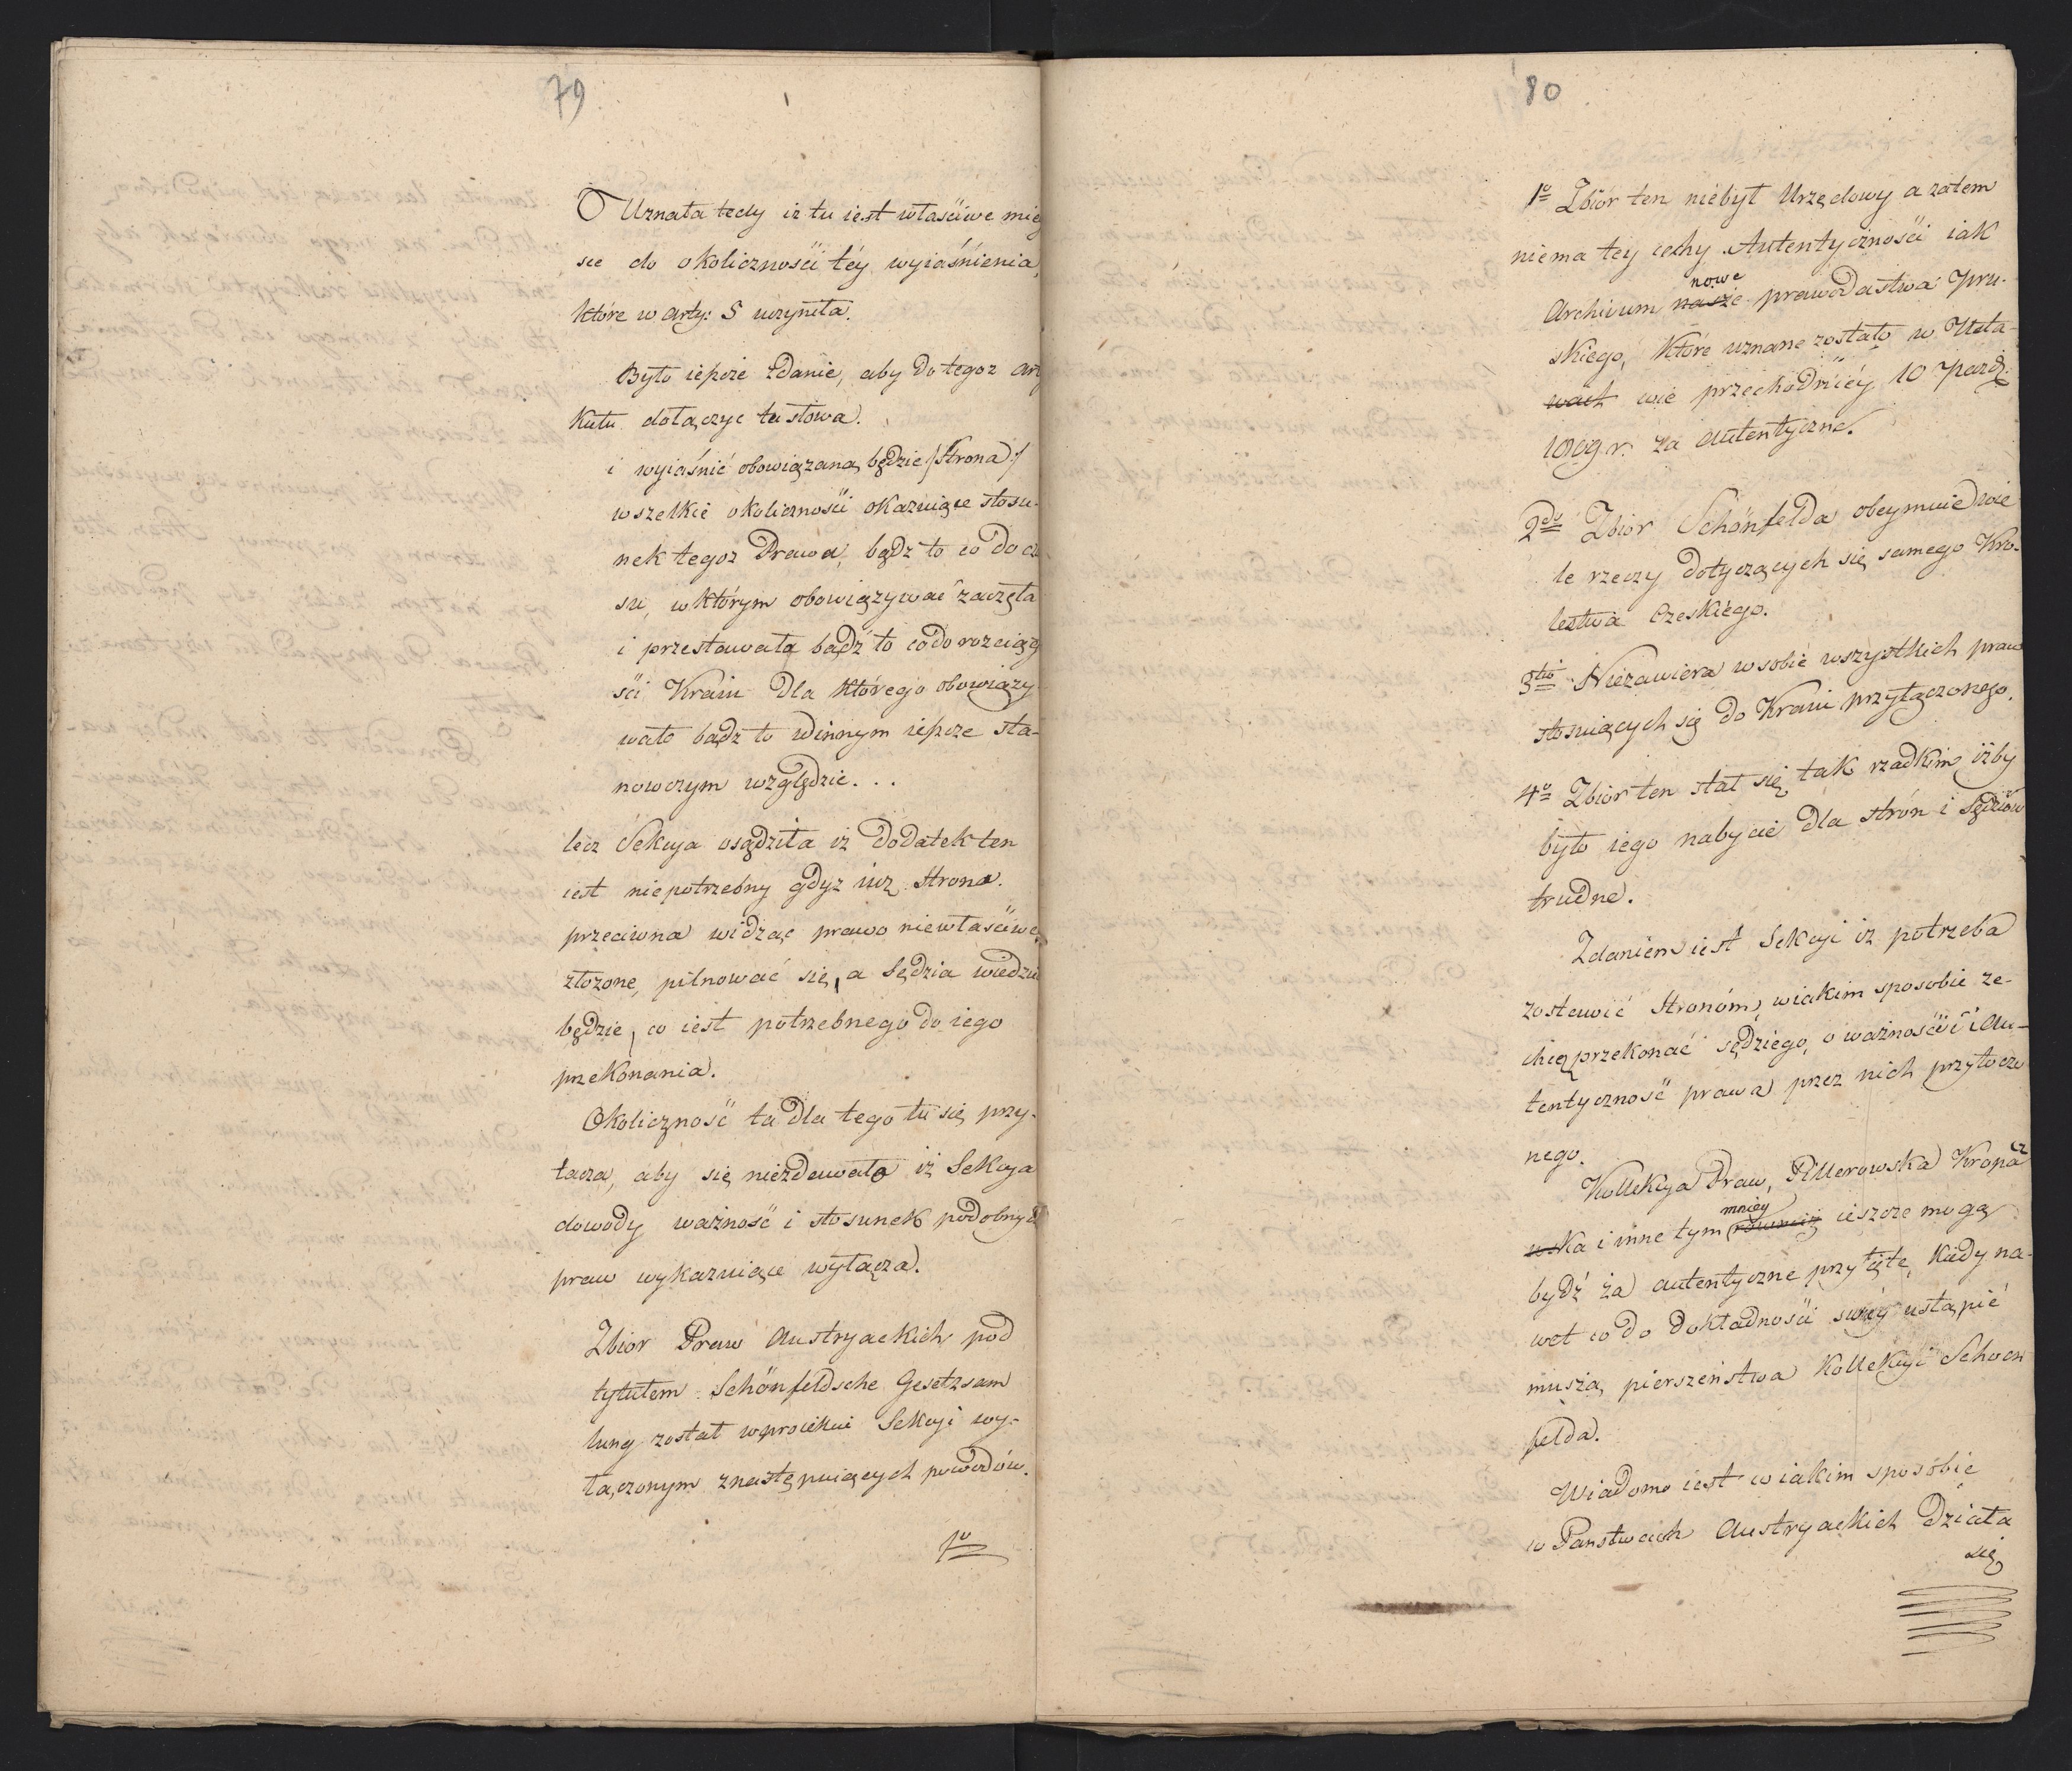 79
Uznała tedy iż tu iest właściwe miey
sce do okoliczności téy wyiaśnienia,
które w arty: 5 uczyniła.
Było ieszcze zdanie, aby do tegoż arty
kułu dołączyć te słowa.
i wyiaśnić obowiązaną będzie /:Strona:/
wszelkie okoliczności okazuiące stosu-
nek tegoż Prawa, bądź to co do cza
su, w którym obowiązywać zaczęła
i przestawała bądź to co do rozciągło
ści Kraiu dla którego obowiązy
wało bądź to w innym ieszcze sta-
nowczym względzie...
lecz Sekcya osądziła iż dodatek ten
iest niepotrzebny gdyż iuż Strona
przeciwna widząc prawo niewłaściwe
złożone, pilnować się, a Sędzia wiedzieć
będzie, co iest potrzebnego do iego
przekonania.
Okoliczność ta dla tego tu się przy-
tacza, aby się niezdawało iż Sekcya
dowody ważność i stosunek podobnych
praw wykazuiące wyłącza.
Zbior Praw Austryackich pod
tytułem Schönfeldsche Gesetzsam
lung został w proiekcie Sekcyi wy-
łączonym z następuiących powodów.
1º
80
1º Zbiór ten niebył Urzędowy a zatem
niema tey cechy Autentyczności iak
nowe
Archivum nasze prawodastwa Pru-
skiego, które uznane zostało w Usta-
wach wie przechodniéy 10 Paźdź:
1809 r. za autentyczne.
2do Zbior Schönfelda obeymuie wie
le rzeczy dotyczących się samego Kró-
lestwa Czeskiego.
3tio Niezawiera w sobie wszystkich praw
stosuiących się do Kraiu przyłączonego.
4º Zbior ten stał się tak rzadkim iżby
było iego nabycie dla strón i Sędziów
trudne.
Zdaniem iest Sekcyi iż potrzeba
zostawić Stronóm, w iakim sposobie ze-
chcą przekonać sędziego, o ważności i au-
tentyczność prawa przez nich przytoczo
nego.
Kollekcya Praw, Pillerowska Kropacz
mniéy
wska i inne tym równiéż ieszcze mogą
bydź za autentyczne przyięte, kiedy na-
wet co do dokładności swéy ustąpić
muszą pierszeństwa Kollekcyi Schoen
felda.
Wiadomo iest w iakim sposobie
w Państwach Austryackich działa
się